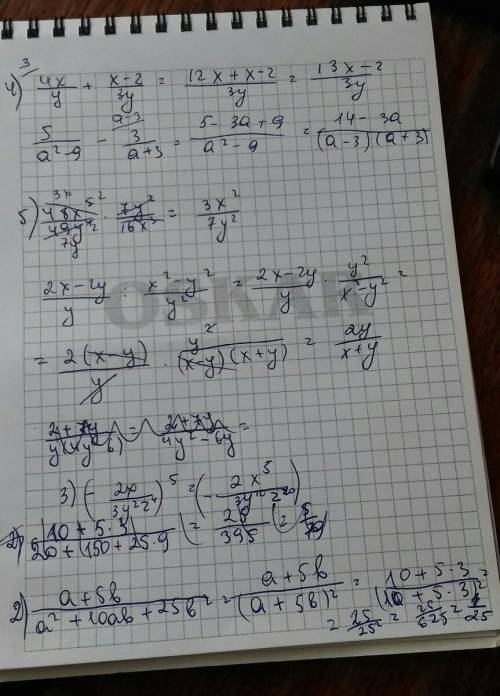 4) 4x/y + x-2/3y = 12x+x-2/3y = 13x-2/3y
5/a²-9 - 3/a+3 = 5-3a+9/a²-9 = 14-3a/(a-3)(a+3)
5) · 7y²/16x³ = 3x²/7y²
2x-2y/y : x²-y²/y² = 2x-2y/y · y²/x²-y² =
= 2(x-y)/y · y²/(x-y)(x+y) = 2y/x+y
3) (-2x/3y²z⁴)⁵ = (-2x⁵/3y¹⁰z²⁰)
2) 10+5·3/20+150+25·9 = 25/395 =
2) a+5b/a²+10ab+25b² = a+5b/(a+5b)² = 10+5·3/(10+5·3)² =
= 25/25² = 25/625 = 1/25
OSKAR